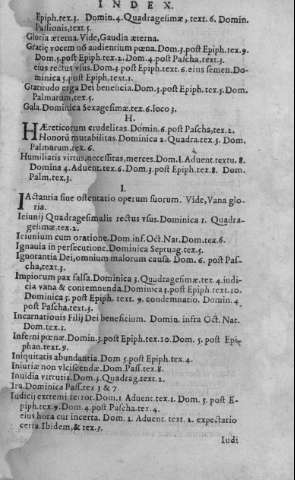 INDEX.
Epiph.tex.3. Domin.4. Quadragesimæ, text.6. Domin.
Passionis, text.5.
Gloria æterna. Vide, Gaudia æterna.
Gratię vocem nō audientium pœna. Dom.3. post Epiph. tex.9.
Dom.5. post Epiph. tex.2. Dom.4. post Pascha, text.3.
eius rectus vsus. Dom.5. post Epiph. text.6. eius semen. Do-
minica 5. post Epiph. text.1.
Gratitudo erga Dei beneficia. Dom.3. post Epiph. tex.5. Dom.
Palmarum, tex.5.
Gula. Dominica Sexagesimæ, tex.6. loco 3.
H.
HÆreticorum crudelitas. Domin.6. post Pascha, tex.2.
Honorū mutabilitas. Dominica 2. Quadra. tex.5. Dom.
Palmarum, tex.6.
Humilitatis virtus, necessitas, merces. Dom.1. Aduent. textu.8.
Domina 4. Aduent. tex.6. Dom.3. post Epiph. tex.8. Dom.
Palm. tex.3.
I.
IActantia siue ostentatio operum suorum. Vide, Vana glo-
ria.
Ieiunij Quadragesimalis rectus vsus. Dominica 1. Quadra-
gesimæ. tex.2.
Ieiunium cum oratione. Dom. inf. Oct. Nat. Dom. tex.6.
Ignauia in persecutione. Dominica Septuag. tex.5.
Ignorantia Dei, omnium malorum causa. Dom.6. post Pas-
cha, text.3.
Impiorum pax falsa. Dominica 3. Quadragesimæ, tex.4. iudi-
cia vana & contemnenda. Dominica 5. post Epiph. text.10.
Dominica 5. post Epiph. text.9. condemnatio. Domin.4.
post Pascha, text.5.
Incarnationis Filij Dei beneficium. Domin. infra Oct. Nat.
Dom. tex.1.
Inferni pœnæ. Domin.3. post Epiph. tex.10. Dom.5. post Epi-
phan. text.9.
Iniquitatis abundantia. Dom 5. post Epiph. tex.4.
Iniuriæ non vlciscendæ. Dom. Pass. tex.8.
Inuidia virtutis. Dom.3. Quadrag. text.2.
Ira. Dominica Pass. tex.3 & 7.
Iudicij extremi terror. Dom.1. Aduent. tex.1. Dom.5. post E-
piph. tex.9. Dom.4. post Pascha, tex.4.
eius hora cur incerta. Dom.1. Aduent. text.2. expectatio
certa. Ibidem, & tex.3.
Iudi